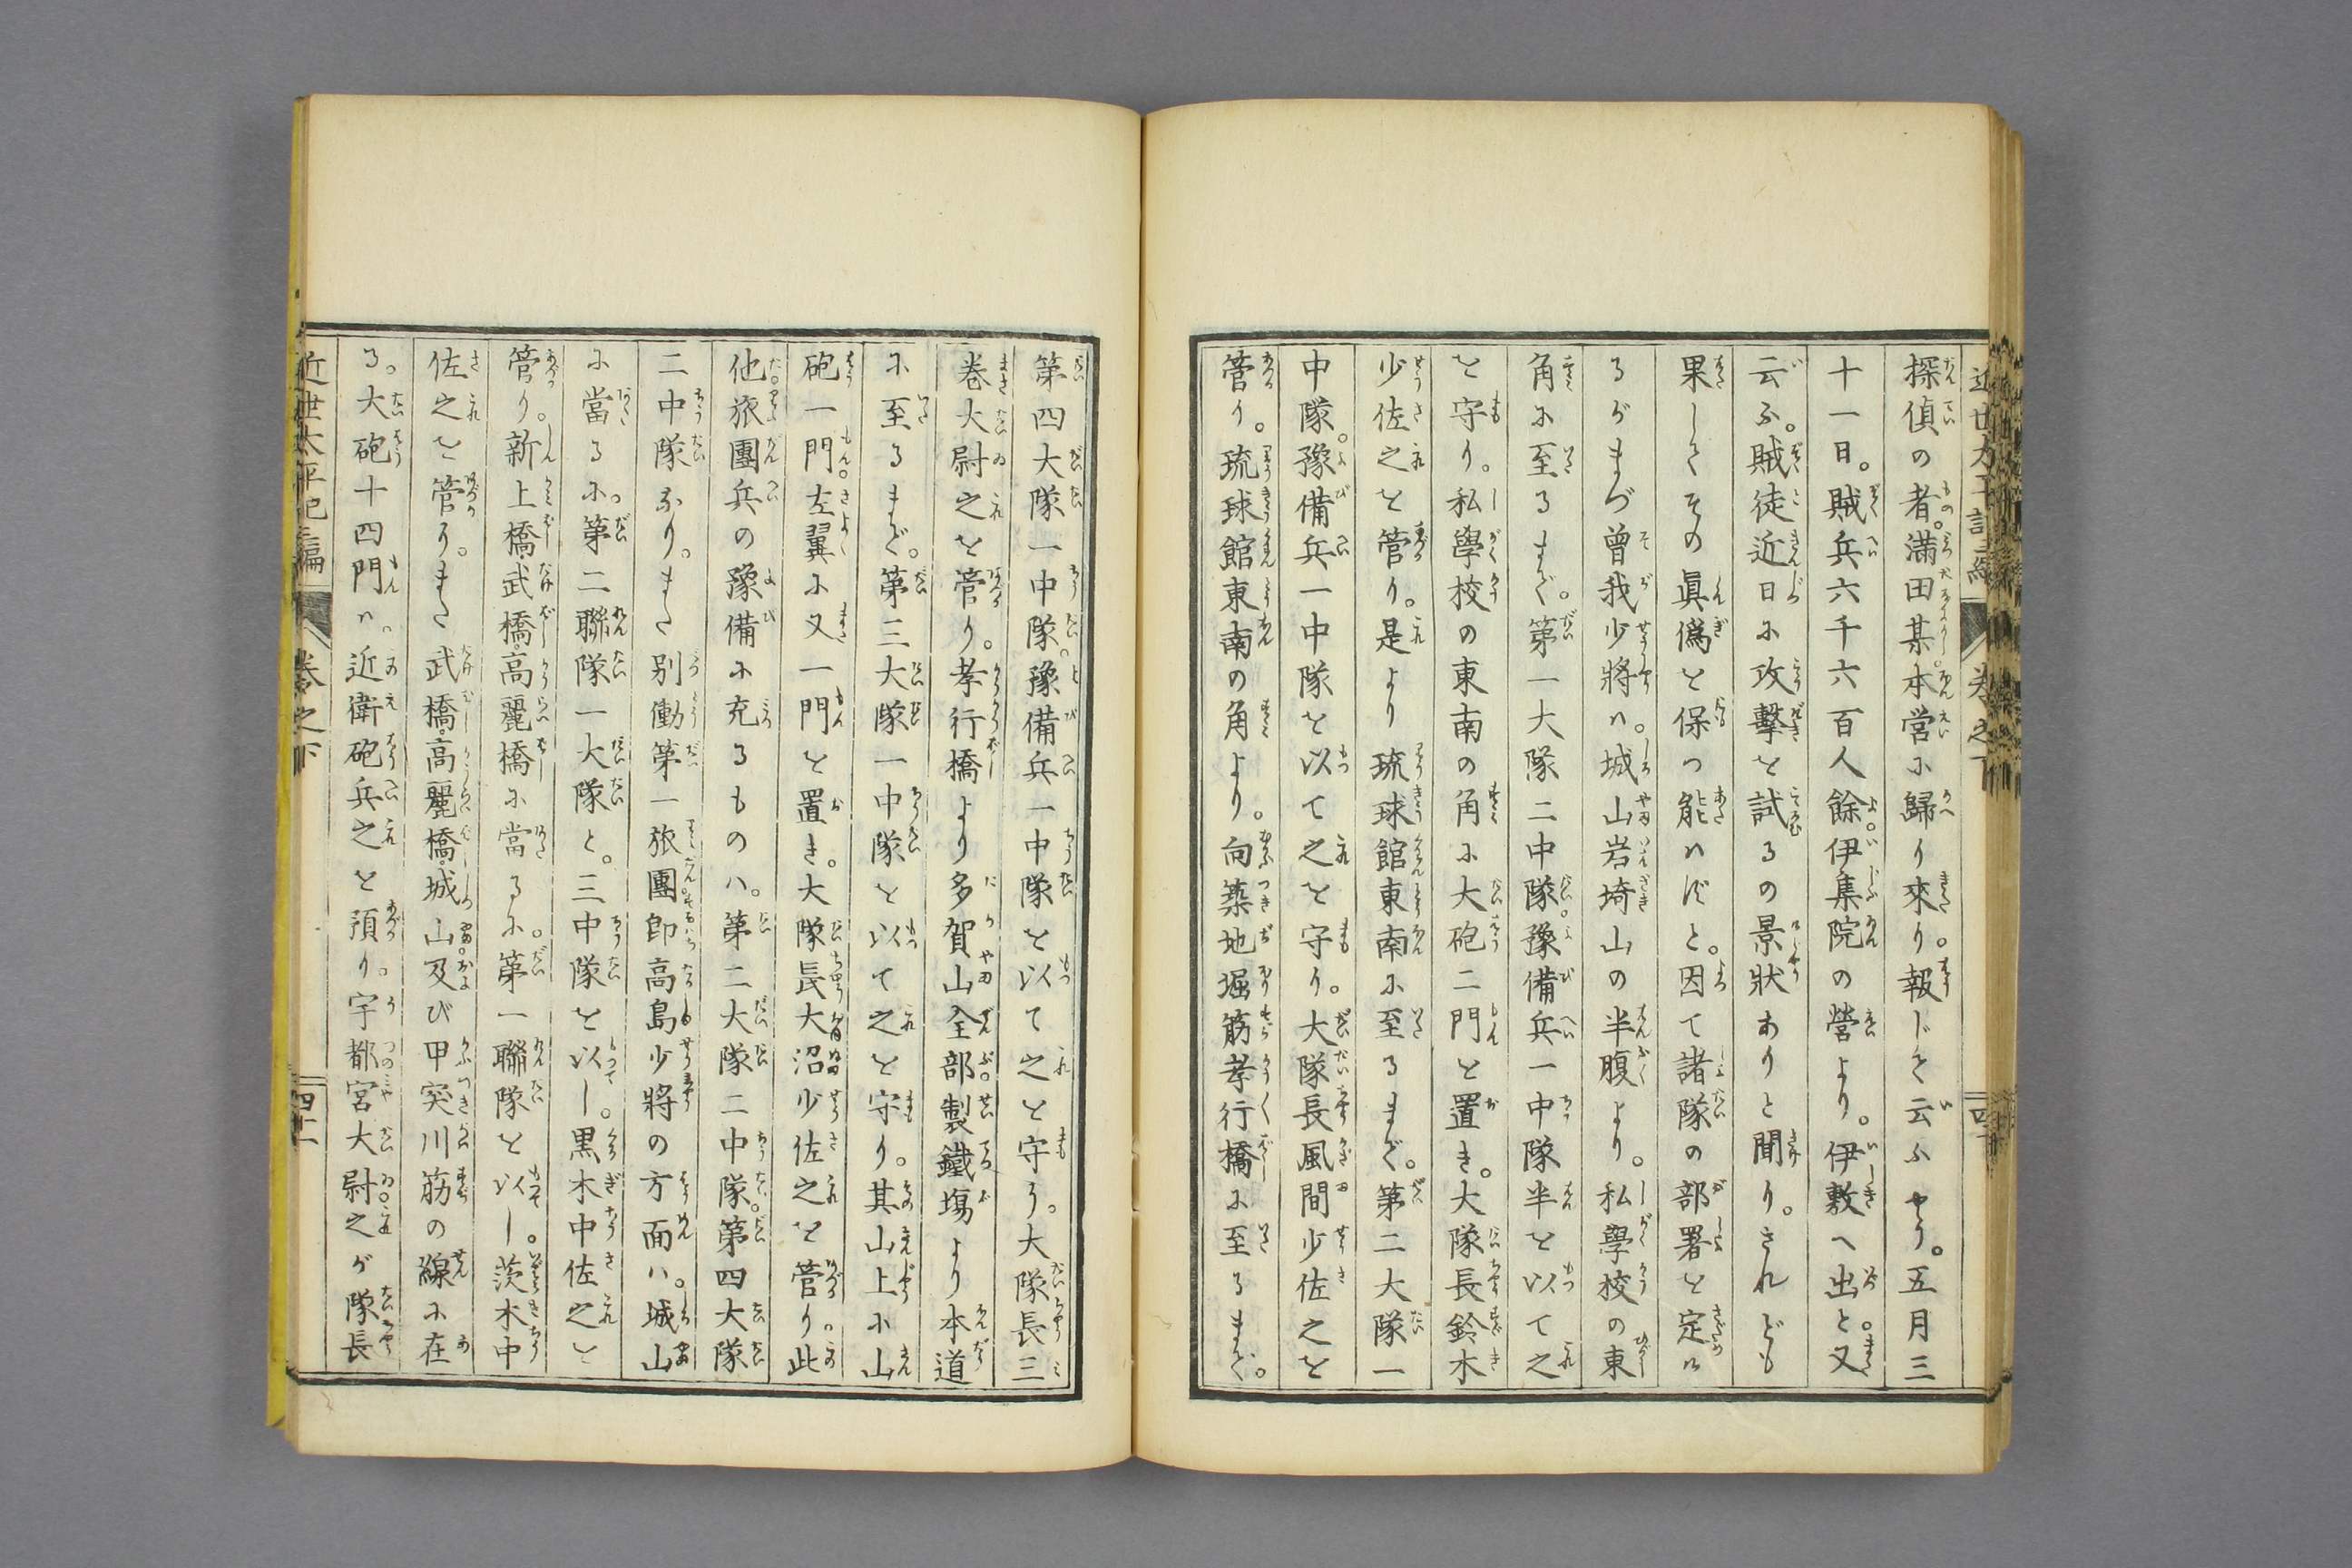 探偵の者。満田某。本営に歸り來り。報じて云ふやう。五月三
十一日。賊兵六千六百人餘。伊集院の營より。伊敷へ出と。又
云ふ。賊徒近日に攻擊を試るの景狀ありと聞り。されども
果してその眞僞を保つ能はずと。因て諸隊の部署を定め
るがまづ曾我少將は。城山岩埼山の半腹より。私學校の東
角に至るまで。第一大隊二中隊。豫備兵一中隊半を以て之
を守り。私學校の東南の角に大砲二門を置き。大隊長鈴木
少佐之を管り。是より琉球館東南に至るまで。第二大隊一
中隊。豫備兵一中隊を以て之を守り。大隊長風間少佐之を
管り。琉球館東南の角より。向築地堀筋孝行橋に至るまで。
第四大隊一中隊。豫備兵一中隊を以て之を守る。大隊長三
卷大尉之を管り。孝行橋より多賀山全部。製鐵塲より本道
に至るまで。第三大隊一中隊を以て之を守り。其山上に山
砲一門。左翼に又一門を置き。大隊長大沼少佐之を管り。此
他旅團兵の豫備に充るものハ。第二大隊二中隊。第四大隊
二中隊なり。また別働第一旅團。即高島少將の方面ハ。城山
に當るに。第二聯隊一大隊と。三中隊を以し。黒木中佐之を
管り。新上橋。武橋。高麗橋に當るに。第一聯隊を以し。茨木中
佐之を管り。また武橋。高麗橋。城山。及び甲突川筋の線に在
る。大砲十四門ハ。近衛砲兵之を預り。宇都宮大尉之が隊長
近世太平記三編 卷之下 四十二